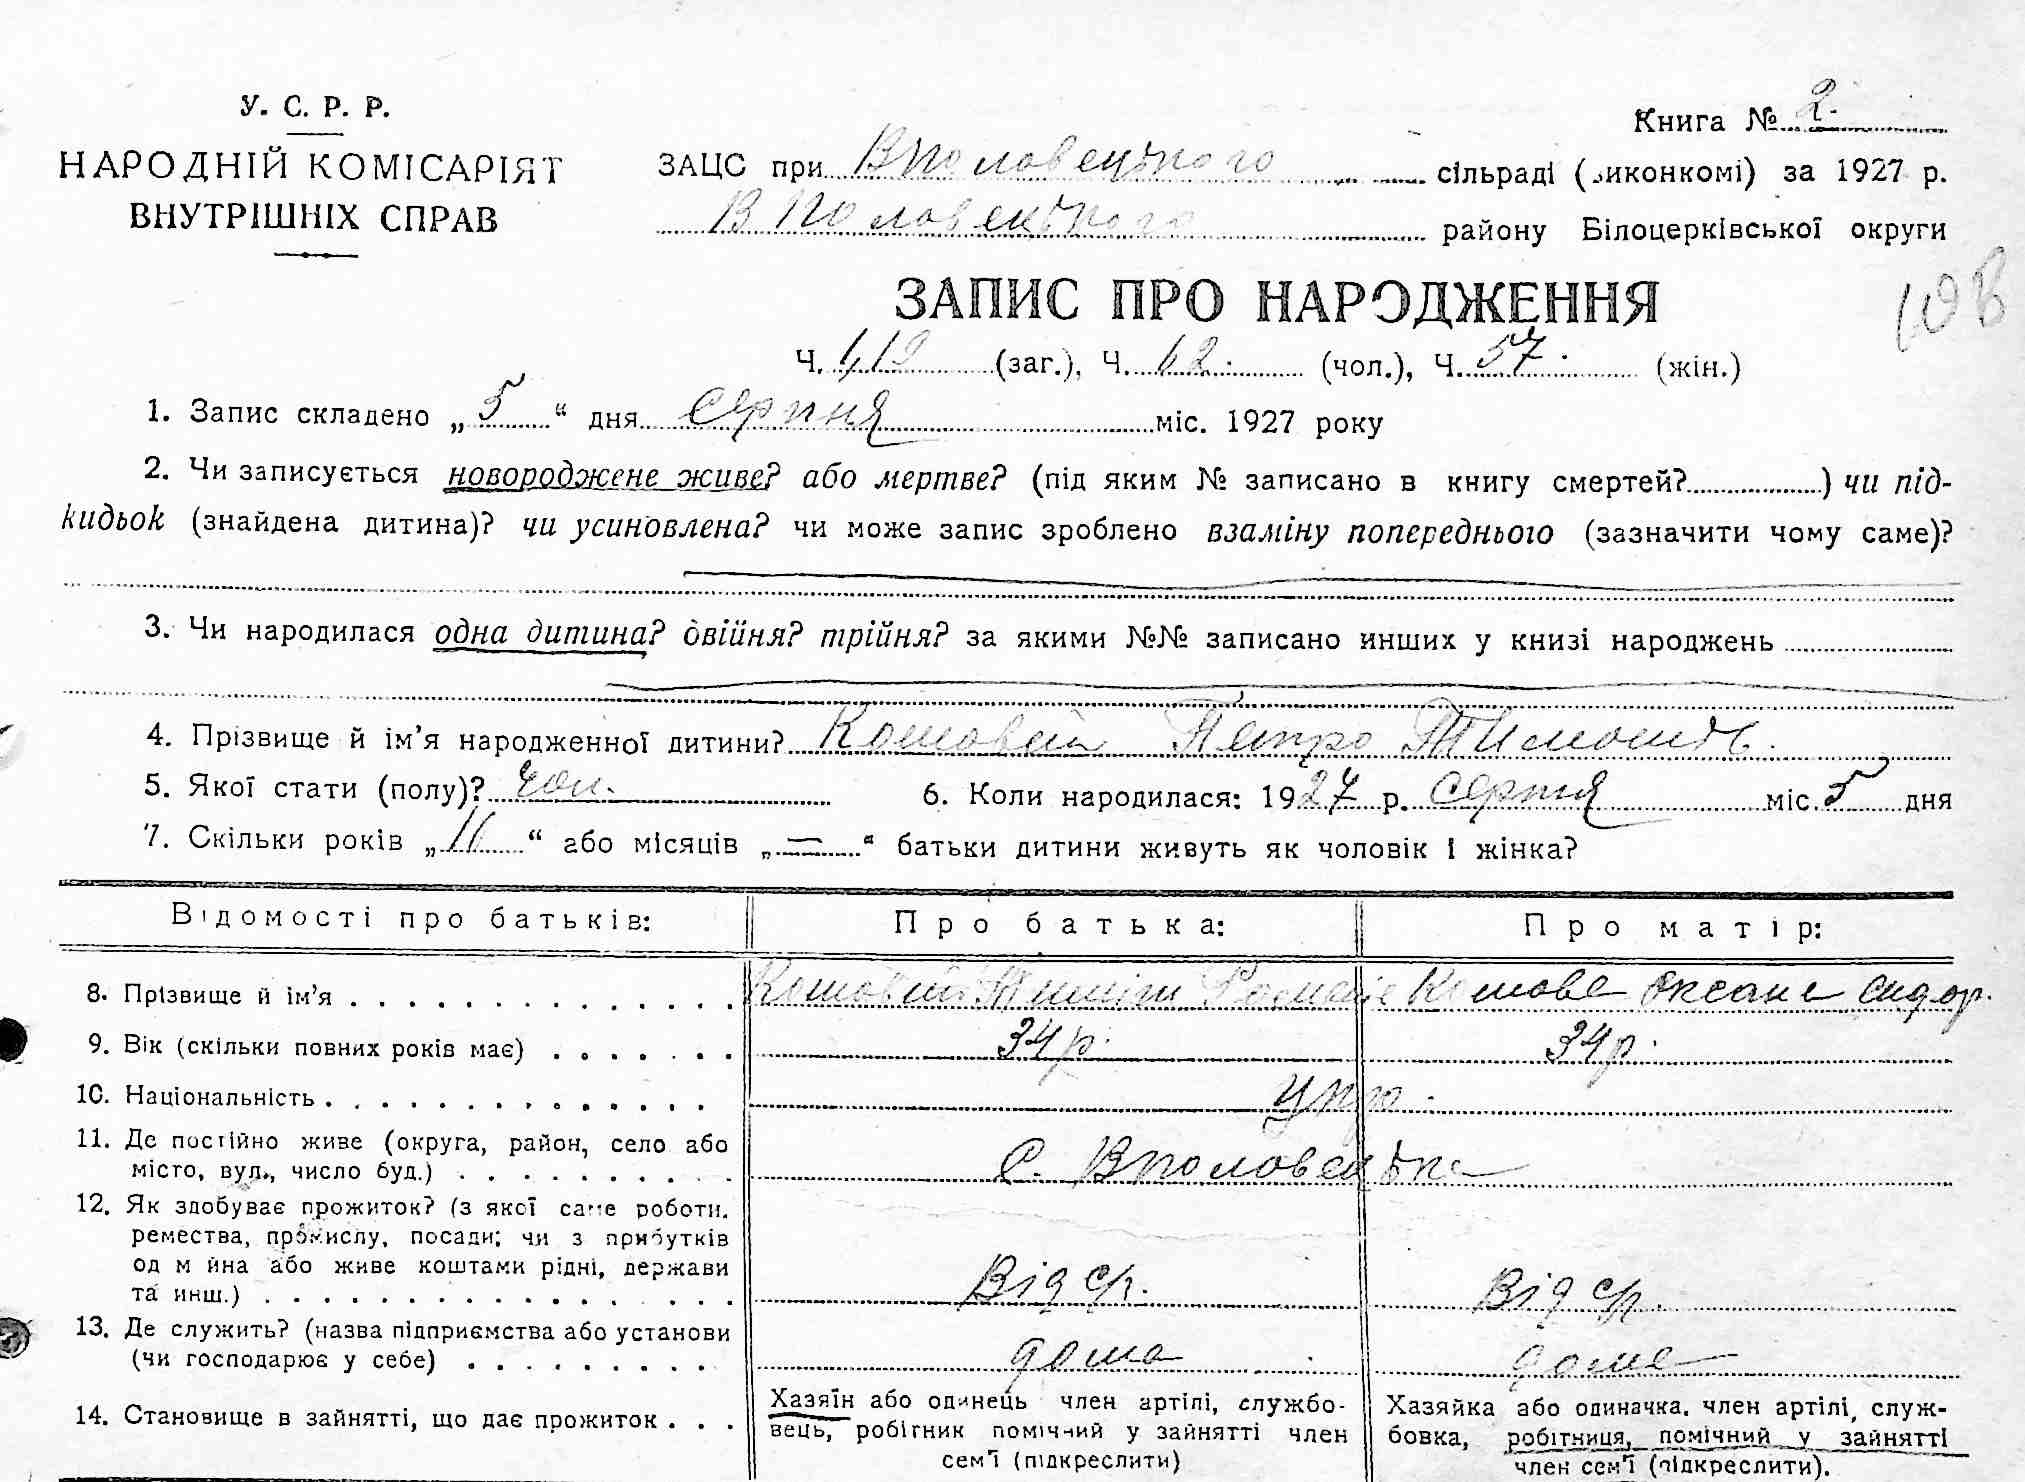 У. С. Р. Р.
НАРОДНІЙ КОМІСАРІЯТ
ВНУТРІШНІХ СПРАВ
Книга № 2.
ЗАЦС при Вполовецького сільраді (виконкомі) за 1927 р.
Вполовецького району Білоцерківської округи
ЗАПИС ПРО НАРОДЖЕННЯ
Ч. 119 (заг.), Ч. 62. (чол.), Ч. 57. (жін.)
1. Запис складено „ 5 “ дня серпня міс. 1927 року
2. Чи записується новороджене живе? або мертве? (під яким № записано в книгу смертей? ) чи під-
кидьок (знайдена дитина)? чи усиновлена? чи може запис зроблено взаміну попереднього (зазначити чому саме)?
3. Чи народилася одна дитина? двійня? трійня? за якими №№ записано инших у книзі народжень
4. Прізвище й ім’я народженної дитини? Кошовий Петро Тимошів.
5. Якої стати (полу)? чол. 6. Коли народилася: 1927 р. серпня міс. 5 дня
7. Скільки років „ 11 “ або місяців „ = “ батьки дитини живуть як чоловік і жінка?
Відомості про батьків: Про батька: Про матір:
8. Прізвище й ім’я Кошовий Тиміш Романів Кошова Оксана Сидор.
9. Вік (скільки повних років має) 34 р. 34 р.
10. Національність укр.
11. Де постійно живе (округа, район, село або
місто, вул., число буд.) с. Вполовецьке
12. Як здобуває прожиток? (з якої саме роботи,
ремества, промислу, посади; чи з прибутків
од майна або живе коштами рідні, держави
та инш.) Від ср. Від ср.
13. Де служить? (назва підприємства або установи
(чи господарює у себе) дома дома
14. Становище в зайнятті, що дає прожиток
Хазяїн або одинець член артілі, службо-
вець, робітник помічний у зайнятті член
сем’ї (підкреслити)
Хазяйка або одиначка, член артілі, служ-
бовка, робітниця, помічний у зайнятті
член сем’ї (підкреслити).